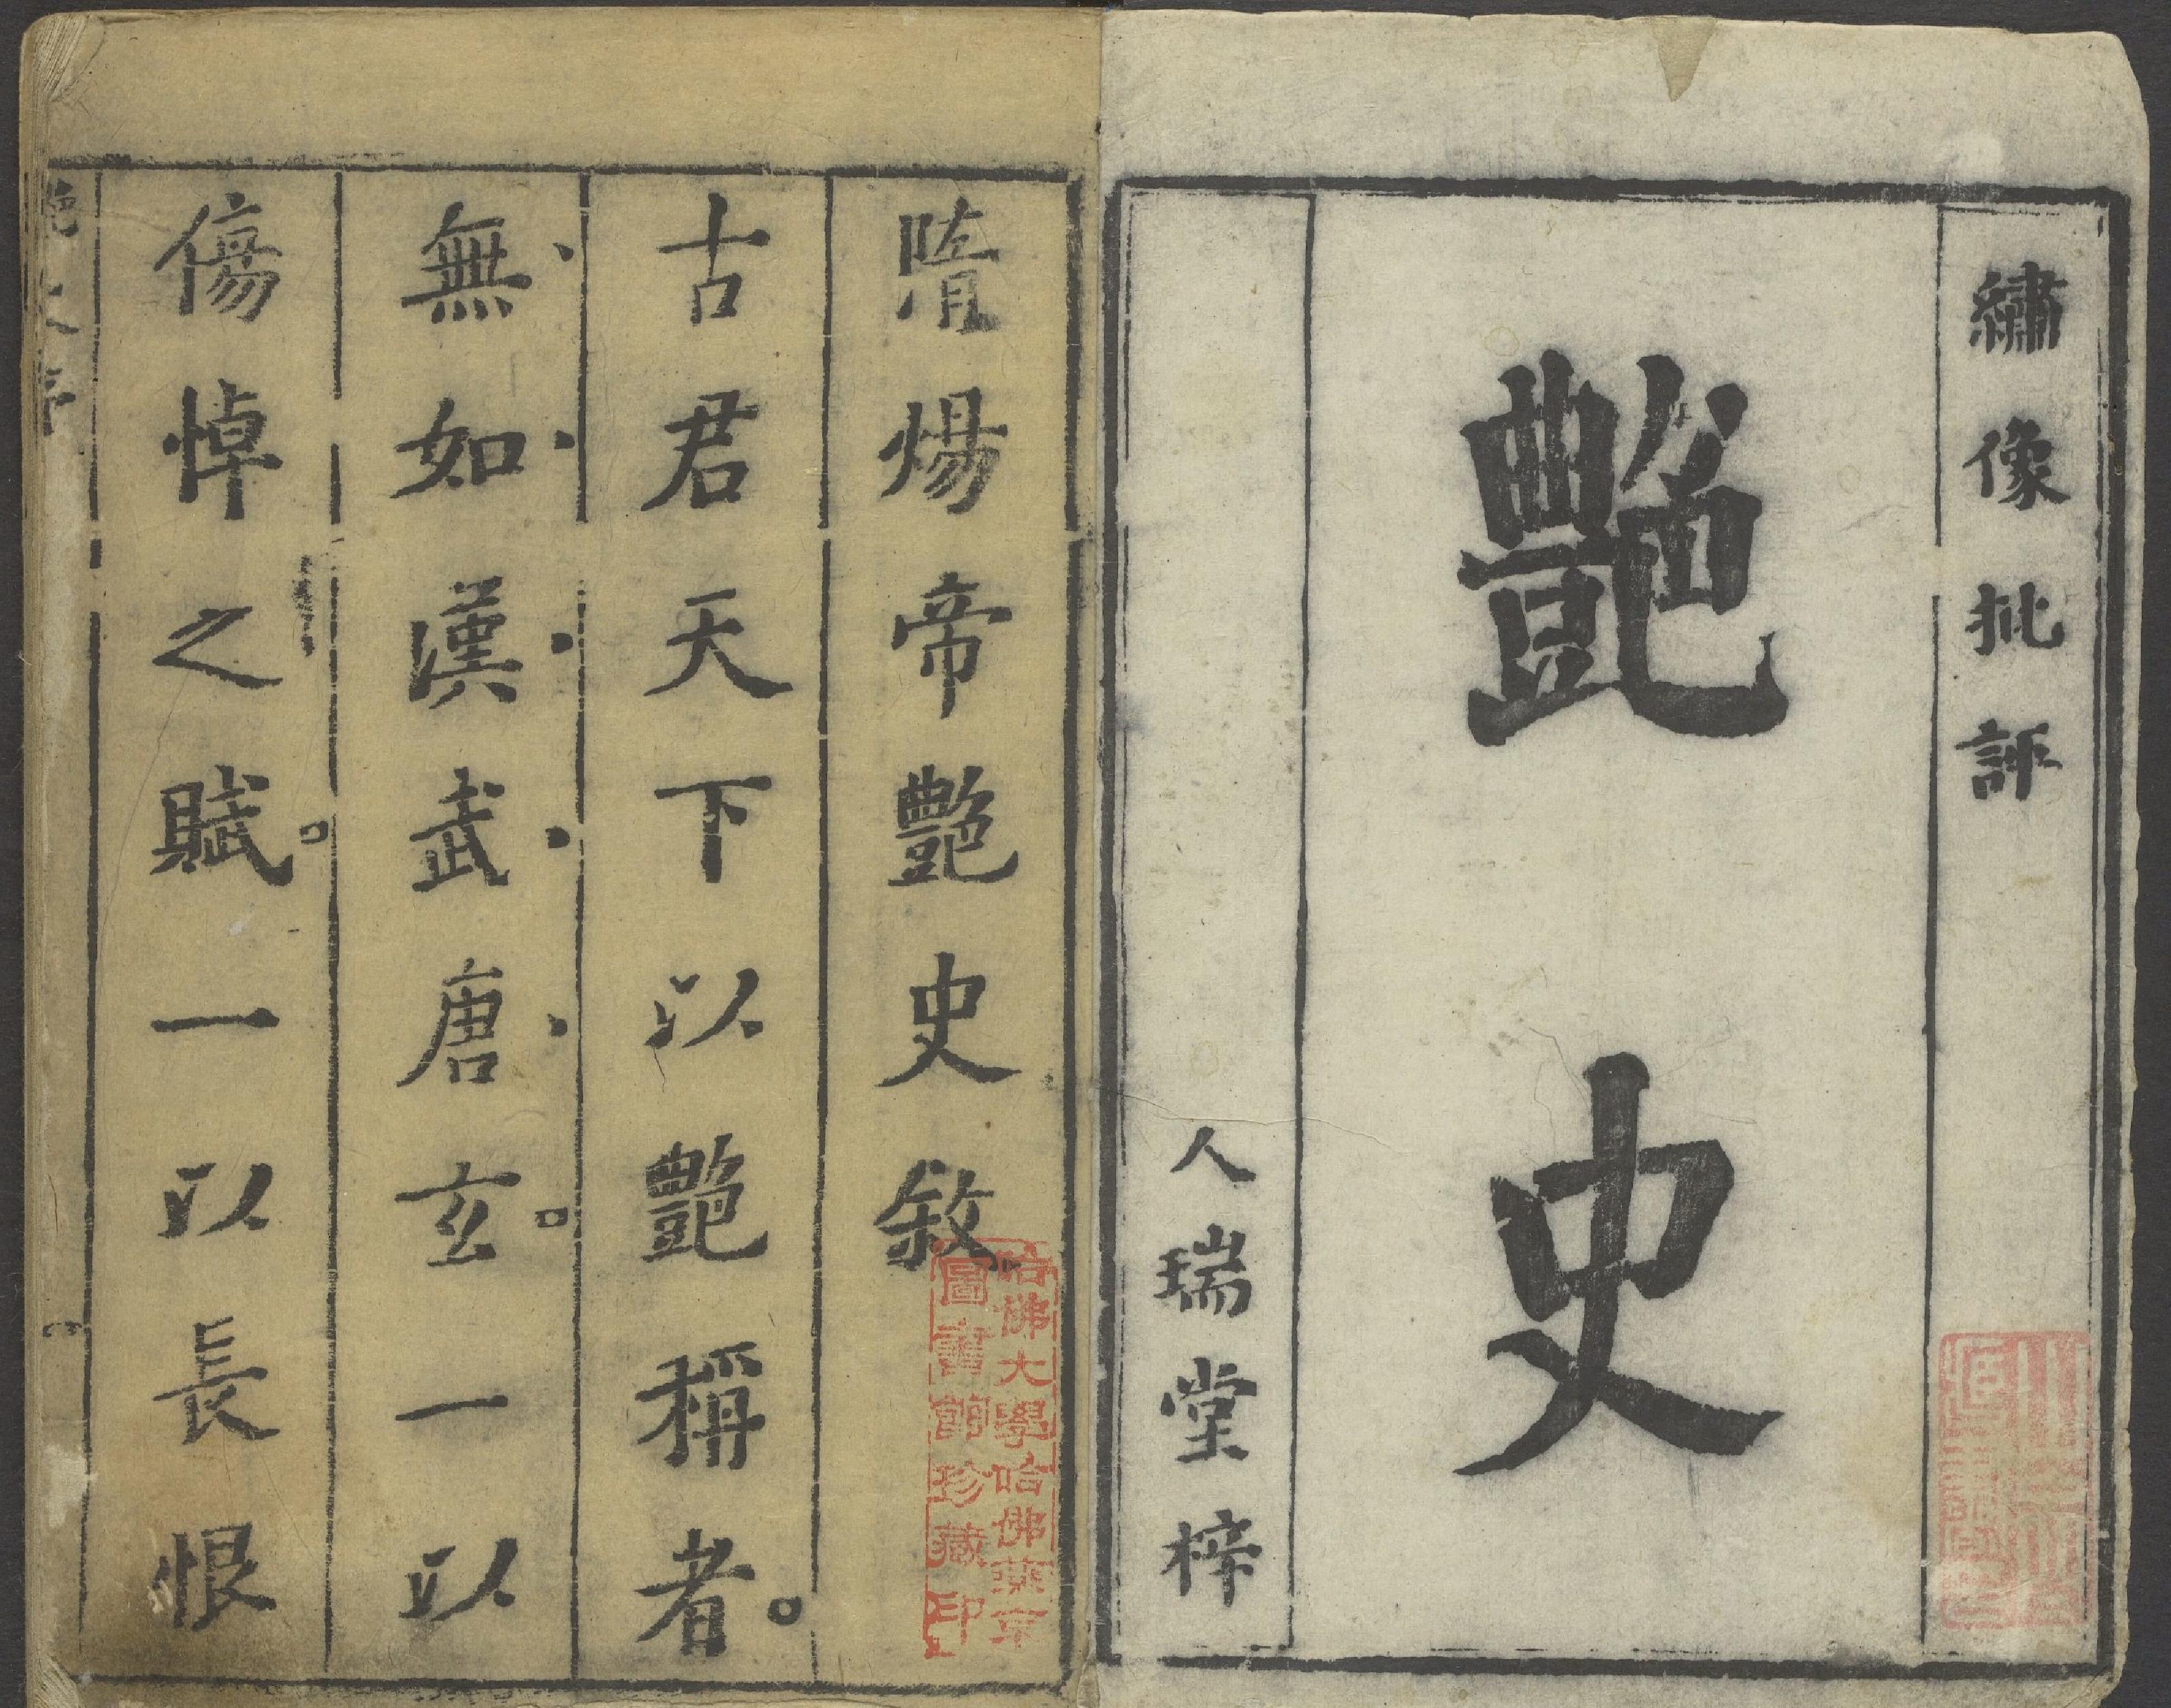 繡像批評
艷史
人瑞堂梓
隋煬帝艷史敘
哈佛大學哈佛燕京
圖書館珍藏印
古君天下以艷稱者。
無如漢武唐玄。一以
傷悼之賦。一以長恨